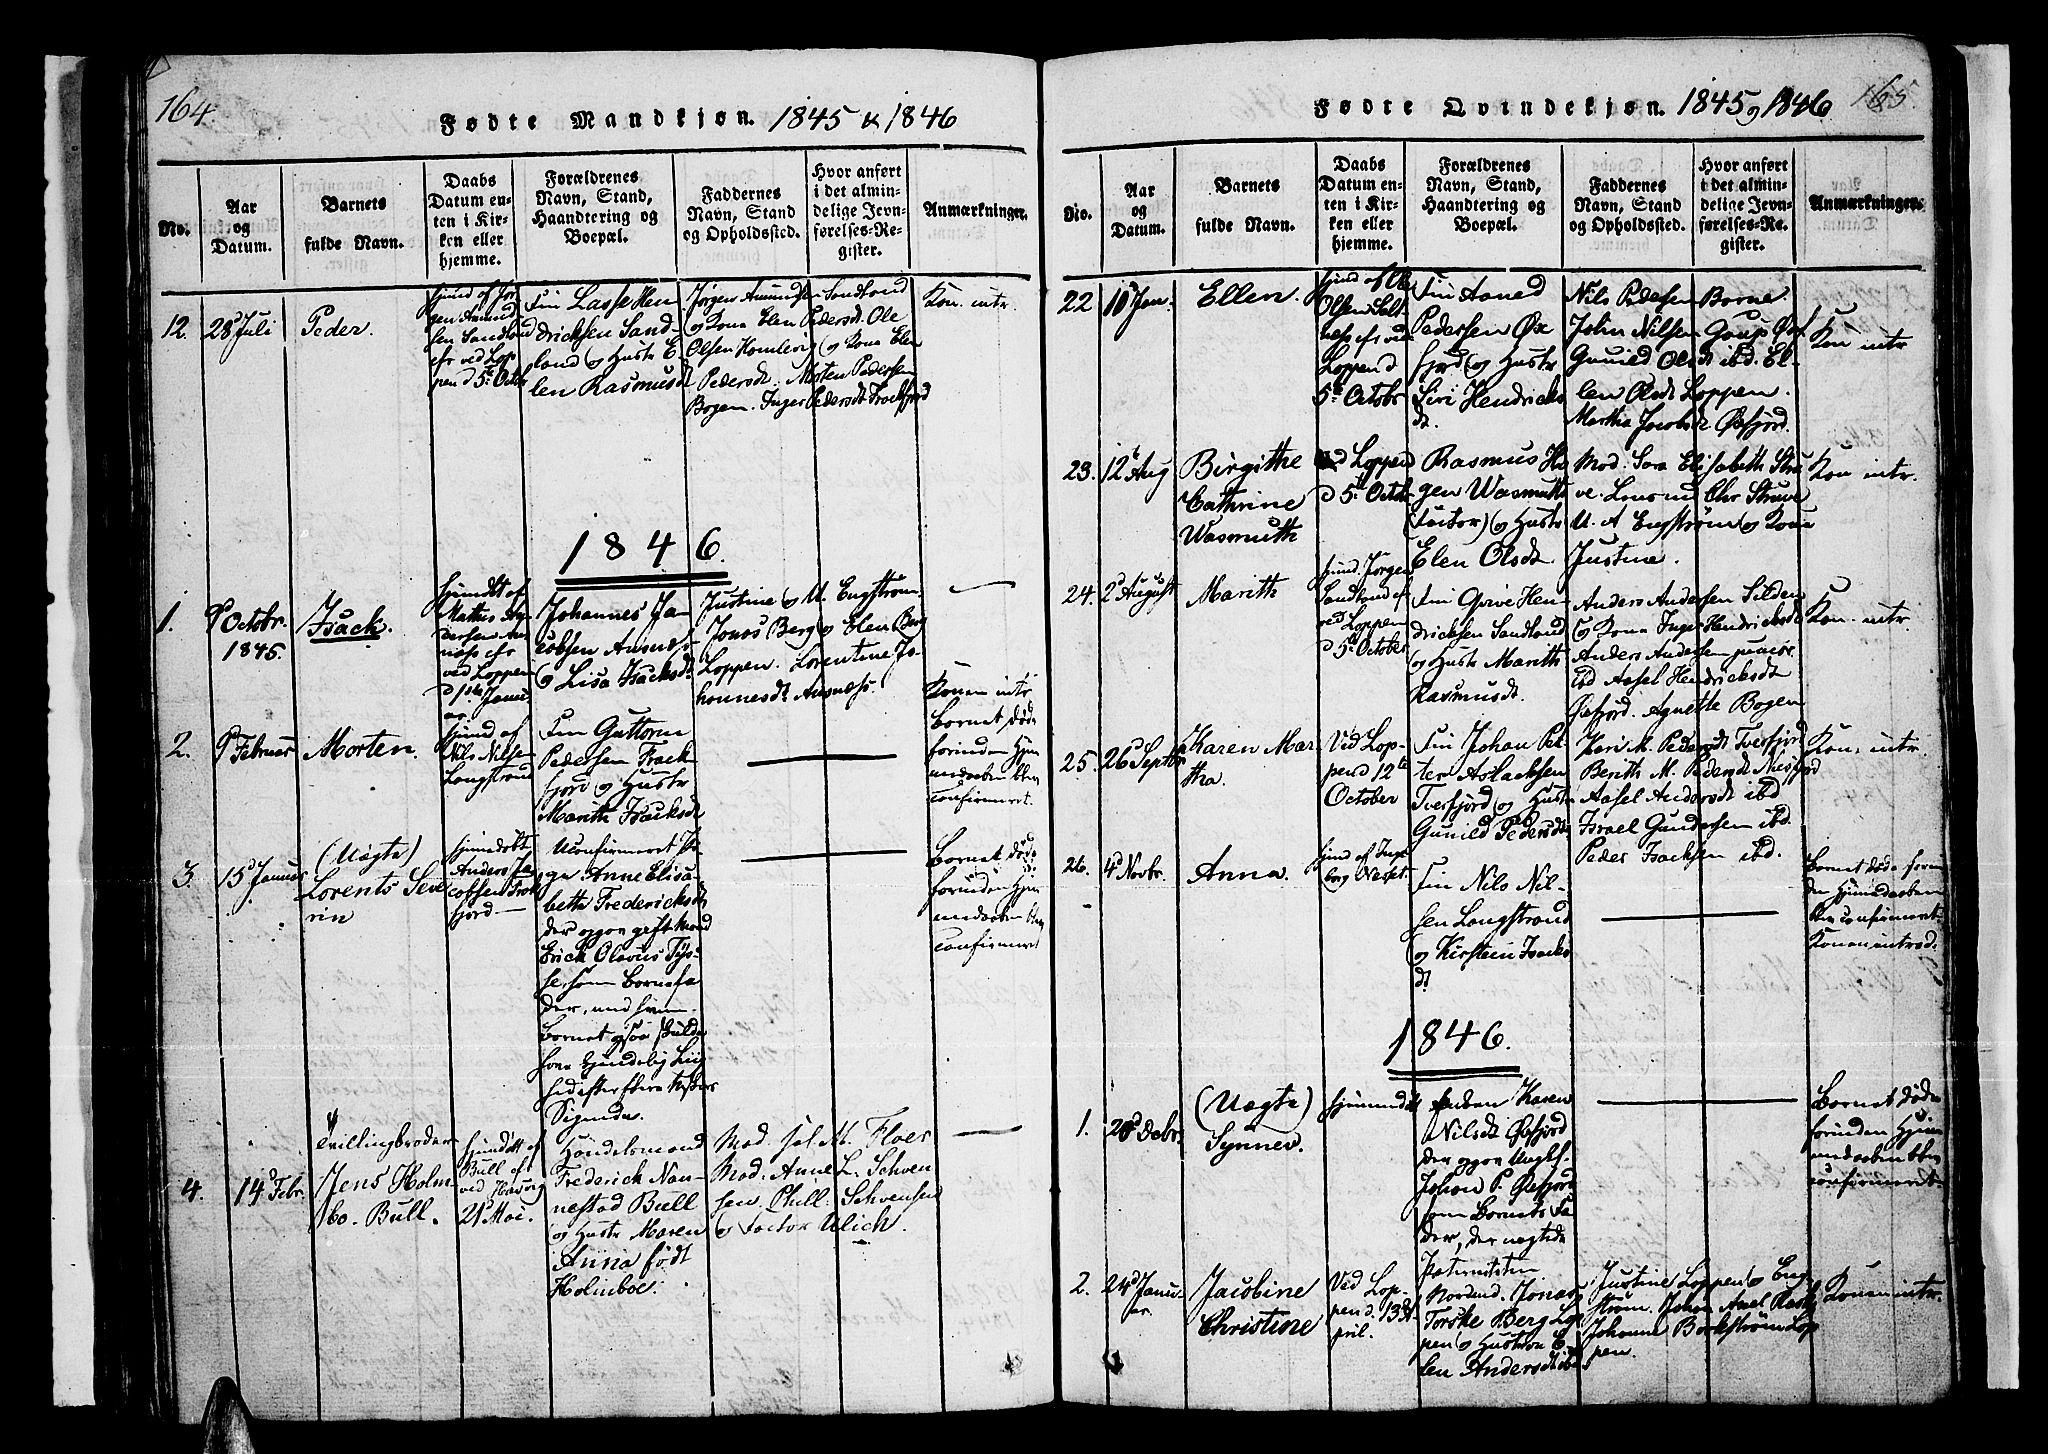 164.
Fødte Mandkjøn. 1845 & 1846
No.
Aar
og
Datum.
Barnets
fulde Navn.
Daabs
Datum en-
ten i Kir-
ken eller
hjemme.
Forældrenes
Navn, Stand,
Haandtering og
Boepæl.
Faddernes
Navn, Stand
og Opholdssted.
Hvor anført
i det almin-
delige Jevn-
førelses-Re-
gister.
Anmærkninger.
12.
28 Juli
Peder.
hjemd af Jør
gen Amund
sen Sandland
efr ved Lop
pen d 5te Octbr
Fin Lasse Hen
dricksen Sand-
land og Hustr E
len Rasmusdt
Jørgen Amundsen Sandland
og Kona Elen Pedersdt. Ole
Olsen Komleig og Kona Elen
Pedersdt. Morten Pedersen
Bogen. Inger Pedersdt Frackfjord
Kon. intr.
1846.
1.
9 Octobr.
1845.
Isack.
hjemdt af
Mathis An
dersen
efr
ved Loppen
d 1ste Janu
ar.
Johannes Ja
cobsen Ausnæs
og Lisa Isacksdt
Justine og U. Engstrøm.
Jonas Berg og Elen Berg
Loppen. Lorentine Jo
hannesdt Ausnæs.
2.
9 Februar
Morten.
hjemd af
Nils Nilsen
Langstrand
Fin Guttorm
Pedersen Frack
fjord og Hustr
Marith Isacksdt
Konen intr
Barnet døde
forinden Hjem
medaaben blev
confirmeret.
3.
15 Januar
(Uægte)
Lorents Seve
rin
hjemedøbt
Anders Ja
cobsen Frak
fjord
Uconfirmeret Pi
ge Anne Elisa
beth Fredericksdt
der opgav gift Mand
Erick Olavus Tys-
se, som Barnefa
der, med hvem
Barnet ogsaa skulde
have kjendelig Liig
hed efter flere
Sigende.
Barnet døde
forinden Hjem
medaaben blev
confirmeret
4.
14 Febr.
Tvillingbroder
Jens Holm-
bo. Bull.
hjemdøbt af
Bull efr
ved Hasvig
21 Mai.
Handelsmand
Frederick Nan-
nestad Bull
og Hustr Maren
Anna født
Holmboe.
Mad. sel. M. Floer
Mad. Anne L. Schven
sen. Phill. Schvensen
og Factor Ulich.
165.
Fødte Qvindekjøn. 1845 og 1846
No.
Aar
og
Datum.
Barnets
fulde Navn.
Daabs
Datum en-
ten i Kir-
ken eller
hjemme.
Forældrenes
Navn, Stand,
Haandtering og
Boepæl.
Faddernes
Navn, Stand
og Opholdssted.
Hvor anført
i det almin-
delige Jevn-
førelses-Re-
gister.
Anmærkninger.
22
10 Jan.
Ellen.
hjemd af Ole
Olsen
efr ved
Loppen d
5te Octobr
Fin Amed
Pedersen Øx
fjord og Hustr
Siri Hendricks
dt.
Nils Pedersen Borne
John Nilsen Gaup Øxf.
Gunild Olsdt ibd. El-
len Olsdt Loppen.
Martha Jacobsdt Øxfjord.
Kon intr
23.
12 Aug
Birgithe
Cathrine
Wasmuth
ved Loppen
d 5te Octbr
Rasmus Ha
gen Wasmuth
(Factor) og Hustr
Elen Olsdt.
Mad. Sara Elisabeth Stru
ve. Lensmd Chr Struve
U. A Engstrøm og Kona
Justine.
Kon intr.
24.
2 August
Marith
hjemd. Jørgen
Sandland efr
ved Loppen
d 5te October
Fin Greve Hen-
dricksen Sandland
og Hustr Marith
Rasmusdt.
Anders Andersen Silden
og Kona Inger Hendricksdt
Anders Andersen junior
Ebd Aasel Hendricksdt
Øxfjord. Agnethe Bogen
Kon. intr.
25.
26 Septbr
Karen Mar
tha.
Ved Lop-
pen d 12te
October
Fin Johan Pet
ter Aslacksen
Tverfjord og Hustr
Gunild Pedersdt
Kari M. Pedersdt Tverfjord
Berith M. Pedersdt Nusfjord
Aasel Andersdt ibd
Israel Gundersen ibd.
Peder Isacksen ibd.
Kon. intr.
26.
4 Novbr.
Anna.
hjemd af Inge
borg Næset
Fin Nils Nil-
sen Langstrand
og Kirsten Isacks
dt
Barnet døde forin
den Hjemedaaben
blev confirmeret.
Konen introd.
1846.
1.
20 Debr.
(Uægte)
Synnev.
hjemmedt
Enken Karen
Nilsdt Øxfjord
der opgav Ungk.
Johan P. Øxfjord
som Barnets Fa
der, der nægtede
Paterniteten
Barnet døde
forinden Hjem
medaaben blev
confirmeret.
2.
24 Janu-
ar.
Jacobine
Christine
Ved Lop-
pen d. 13 A-
pril.
Nordmd. Jonas
Torske Berg Lop
pen og Hustru E-
len Andersdt ibd
Justine Loppen og Eng
strøm. Johan Axel
Johanne Backstrøm Lop
pen.
Konen intr.